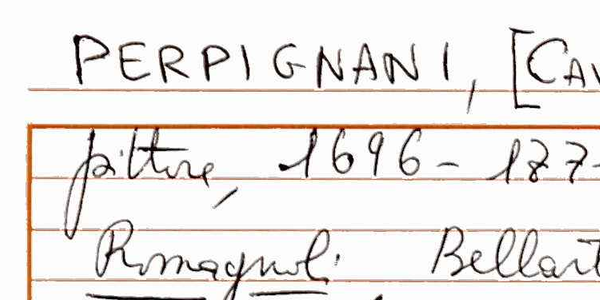 PERPIGNANI, [CAV
pittore, 1696-177
Romagnoli Bellart